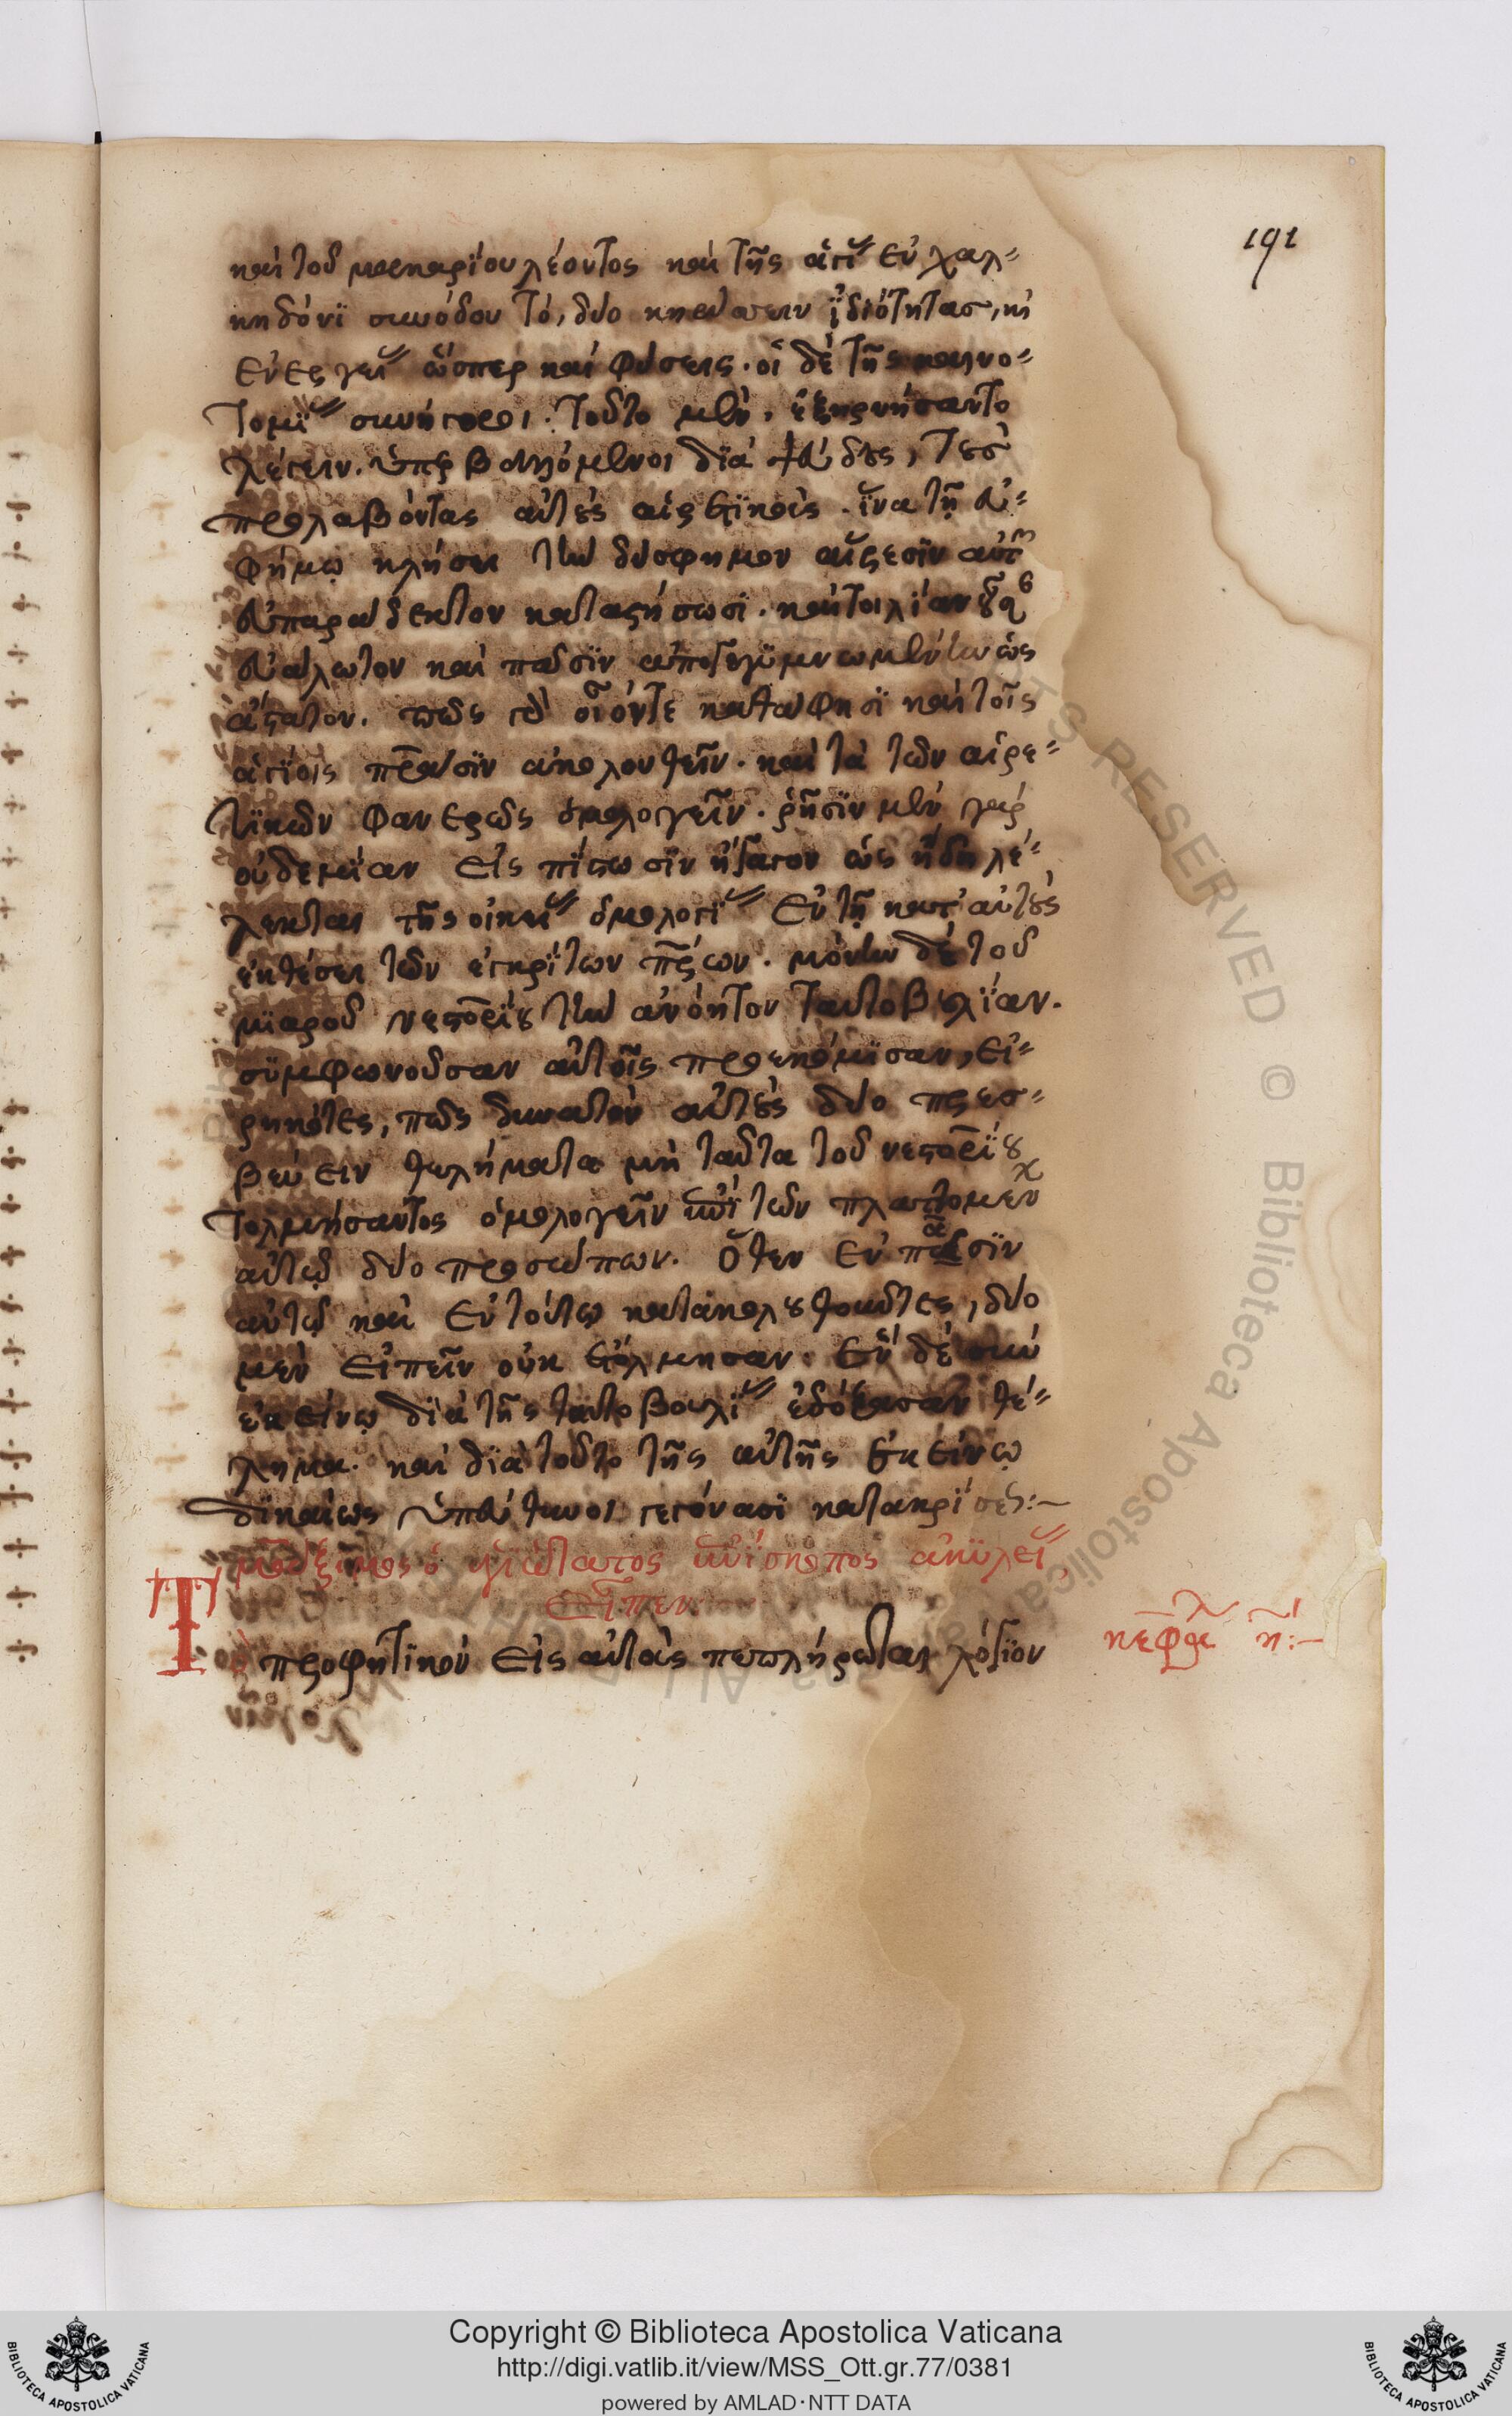 191
καὶ τοῦ μακαρίου λέοντος καὶ τῆς ἁγί" ἐν χαλ-
κηδόνι συνόδου τό, δύο κηρύττειν ἰδιότητας, κ
ἐνεργεί" ὥσπερ καὶ φύσεις. οἱ δὲ τῆς καινο-
τομί" συνήγοροι. τοῦτο μὲν, ἐξηρνήσαντο
λέγειν. ὑπερβαλλόμενοι
προλαβόντας αὐτοὺς αἱρετικοὺς. ἵνα τῇ εὐ-
φήμῳ κλήσει τὴν δύσφημον αἵρεσιν αὐτ
εὐπαράδεκτον καταστήσωσι. καίτοι λίαν
εὐάλωτον καὶ πᾶσιν ἀπογεγυμνωμένην ὡς
ἄτοπον. πῶς οἷόν τε κατάφασι καὶ τοῖς
ἁγίοις πράσιν ἀκολουθεῖν. καὶ τὰ τῶν αἱρε-
τικῶν φανερῶς ὁμολογεῖν. ῥῆσιν μὲν γὰρ
οὐδεμίαν εἰς πίστωσιν ἤγαγον ὡς ἤδη λέ-
λεκται τῆς οἰκεί" ὁμολογί" ἐν τῇ κατ' αὐτοὺς
ἐκθέσει τῶν ἐγκρίτων πρων. μόνην δὲ τοῦ
μιαροῦ νεστορίου τὴν ἀνόητον ταυτοβουλίαν.
συμφωνοῦσαν αὐτοῖς προεκόμισαν, εἰ-
ρηκότες, πῶς δυνατὸν αὐτοὺς δύο πρεσ-
βεύειν θελήματα μὴ ταῦτα τοῦ νεστορίου
τολμήσαντος ὁμολογεῖν ἐπὶ τῶν πλαττομέν
αὐτῷ δύο προσώπων. ὅθεν ἐν πᾶσιν
αὐτῷ καὶ ἐν τούτῳ κατακολουθοῦντες, δύο
μὲν εἰπεῖν οὐκ ἐτόλμησαν. ἓν δὲ σὺν
ἐκείνῳ διὰ τῆς ταυτοβουλί" ἐδόξασαν θέ-
λημα. καὶ διὰ τοῦτο τῆς αὐτῆς ἐκείνῳ
δικαίως ὑπεύθυνοι γεγόνασι κατακρίσε:-
ὁ ἁγιώτατος ἐπίσκοπος ἀκυλεί"
εἶπεν
Τ
προφητικὸν εἰς αὐτοὺς πεπλήρωται λόγιον
κεφαλ η:-
Copyright © Biblioteca Apostolica Vaticana
http://digi.vatlib.it/view/MSS_Ott.gr.77/0381
powered by AMLAD·NTT DATA
BIBLIOTECA APOSTOLICA VATICANA
BIBLIOTECA APOSTOLICA VATICANA